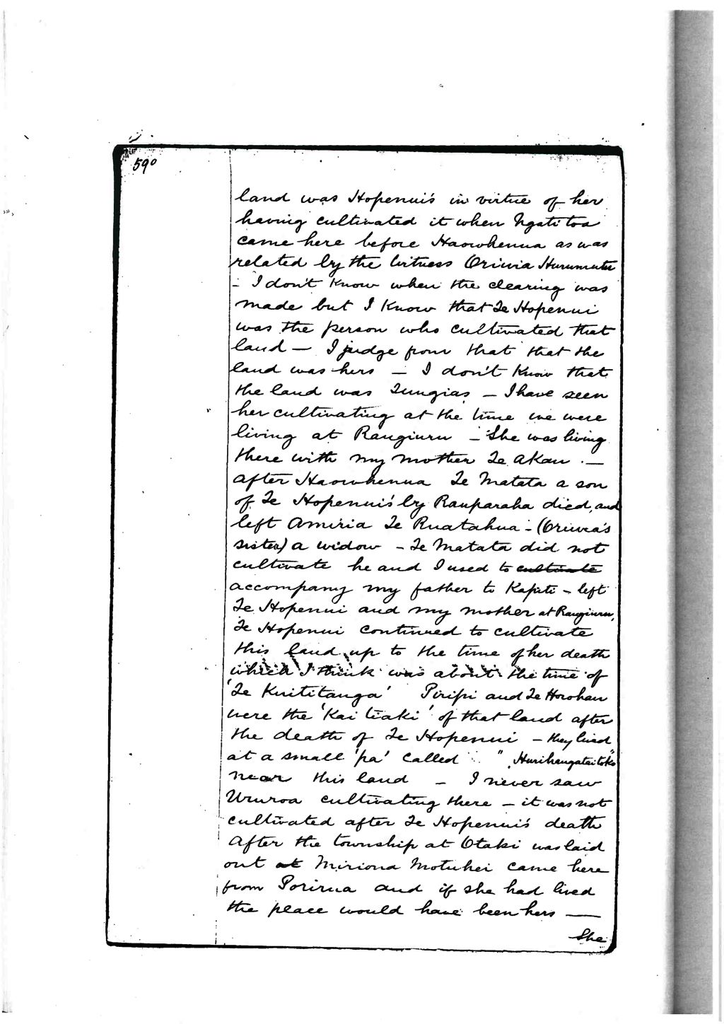 590
land was Hopenui's in virtue of her
having cultivated it when Ngatitoa
came here before Haowhenua as was
related by the witness Oriwia Hurumutu
- I don't know when the clearing was
made but I know that Te Hopenui
was the person who cultivated that
land — I judge from that that the
land was hers — I don't know that
the land was Tungias — I have seen
her cultivating at the time we were
living at Rangiuru — She was living
there with my mother Te Akau . —
After Haowhenua Te Matata a son
of Te Hopenui's by Rauparaha died, and
left Amiria Te Ruatahua - (Oriwia's
sister) a widow - Te Matata did not
cultivate he and I used to cultivate
accompany my father to Kapiti - left
Te Hopenui and my mother at Rangiuru,
Te Hopenui continued to cultivate
this land up to the time of her death
which I think was about the time of
'Te Kuititanga' Piripi and Te Horohau
were the 'Kai tiaki' of that land after
the death of Te Hopenui - they lived
at a small 'pa' called "Hurihangataitoko"
near this land — I never saw
Ururoa cultivating there - it was not
cultivated after Te Hopenui's death
After the township at Otaki was laid
out at Miriona Motuhei came here
from Porirua and if she had lived
the place would have been hers —
She